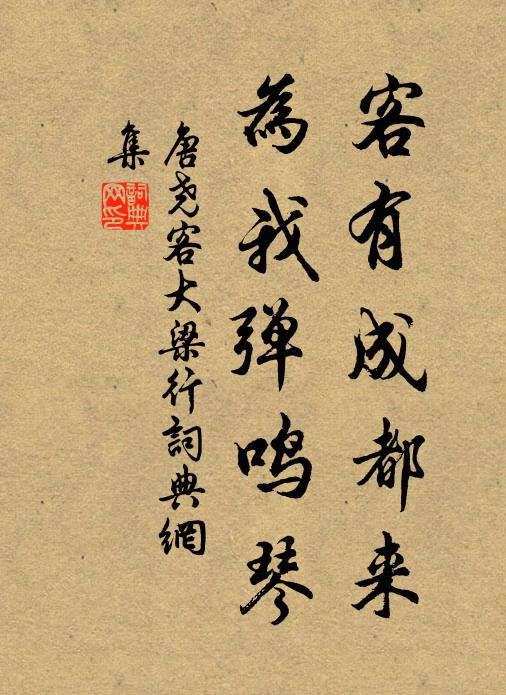 客有成都来
為我弹鸣琴
唐尧客大梁行詞典網
集
詞典
网印